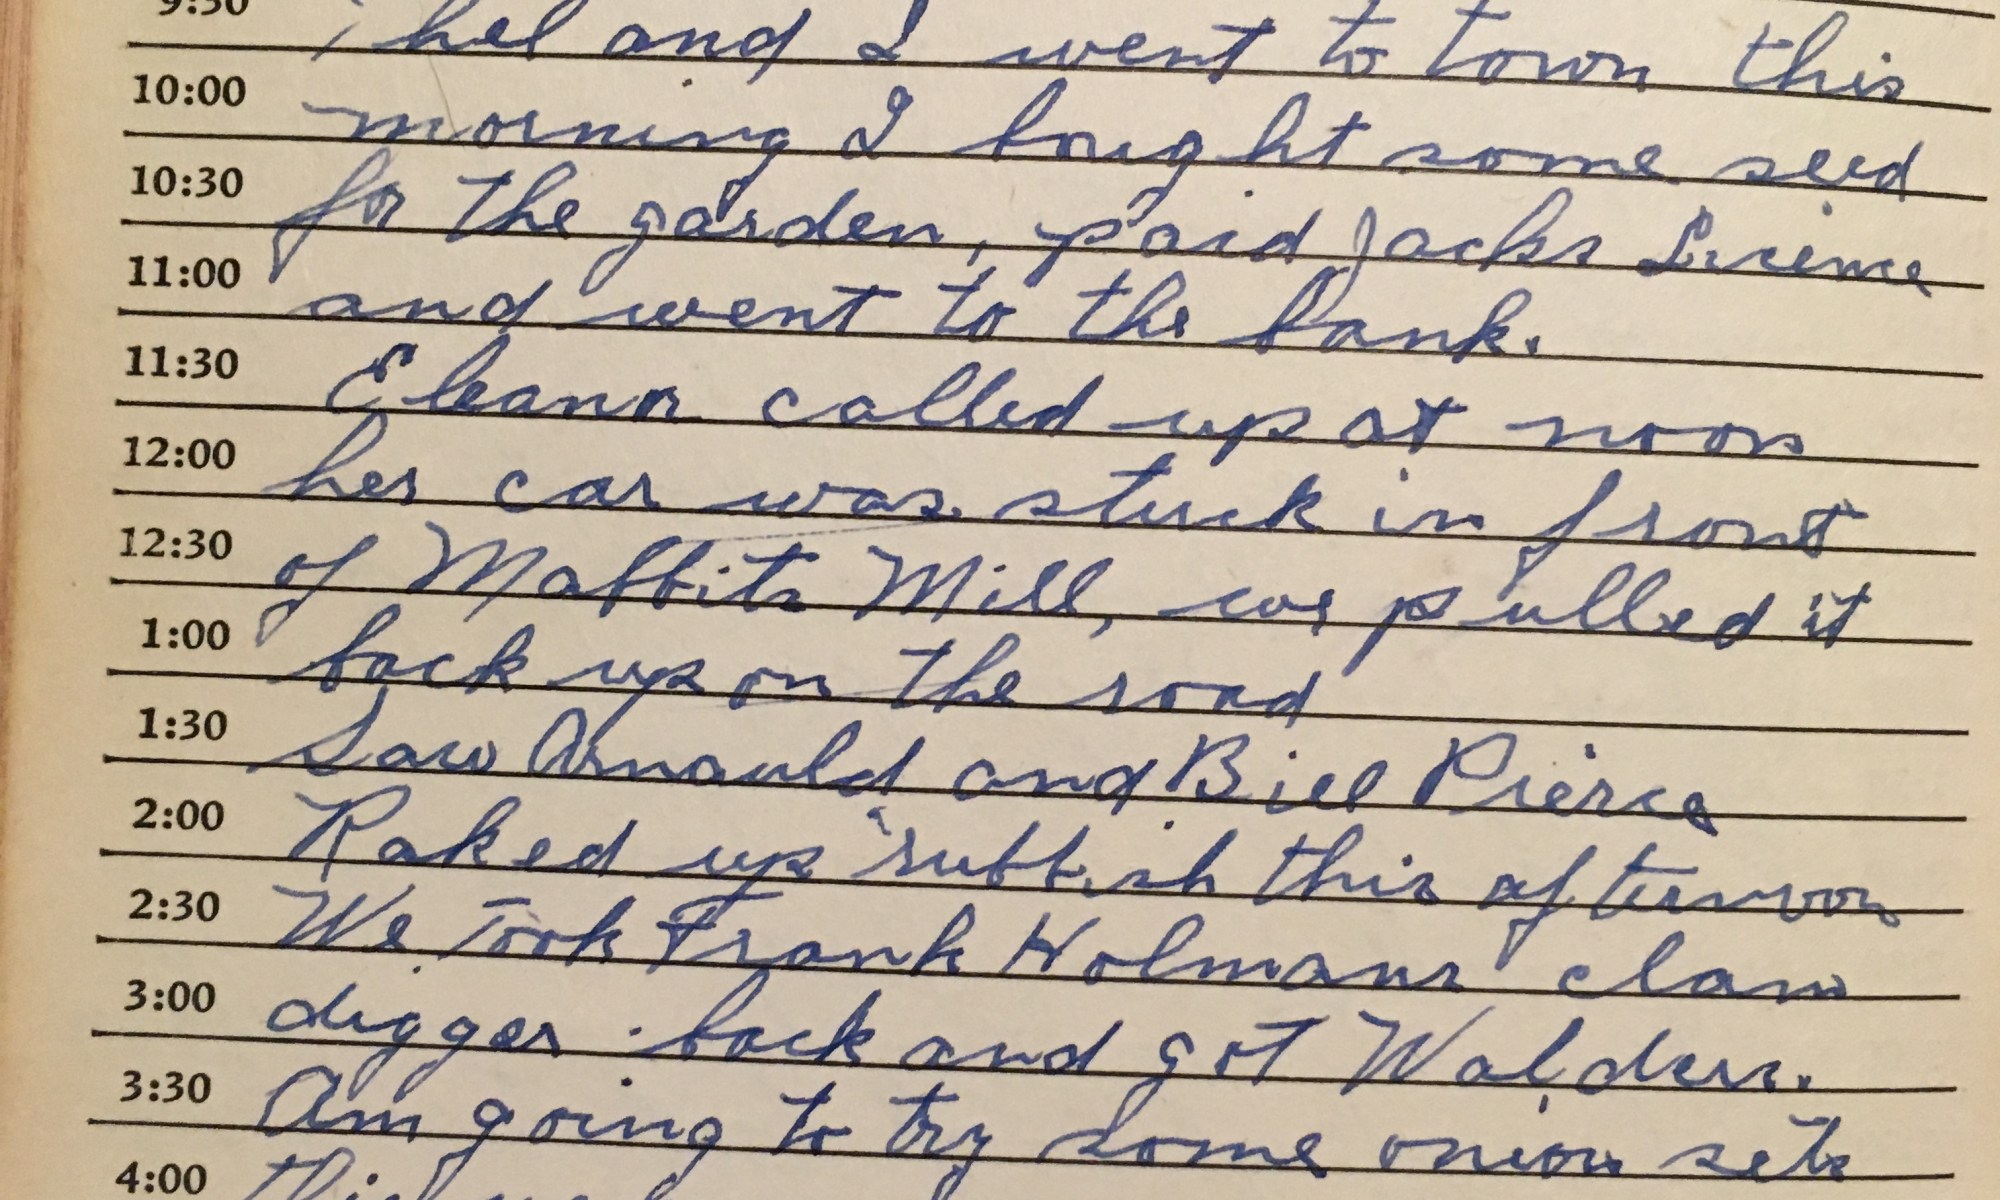 9:30 Thel and I went to town this
10:00 morning I bought some seed
10:30 for the garden, paid Jacks Licence
11:00 and went to the bank.
11:30 Eleanor called up at noon
12:00 her car was stuck in front
12:30 of Mabbits Mill, we pulled it
1:00 back up on the road
1:30 Saw Arnauld and Bill Pierce
2:00 Raked up rubbish this afternoon
2:30 We Took Frank Holmans clam
3:00 digger back and got Waldens.
3:30 Am going to try some onion sets
4:00